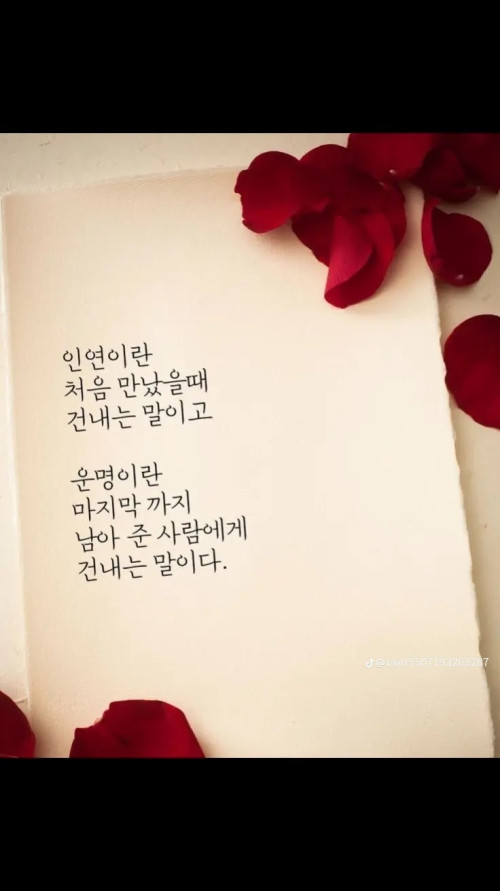 인연이란
처음 만났을때
건내는 말이고
운명이란
마지막 까지
남아 준 사람에게
건내는 말이다.